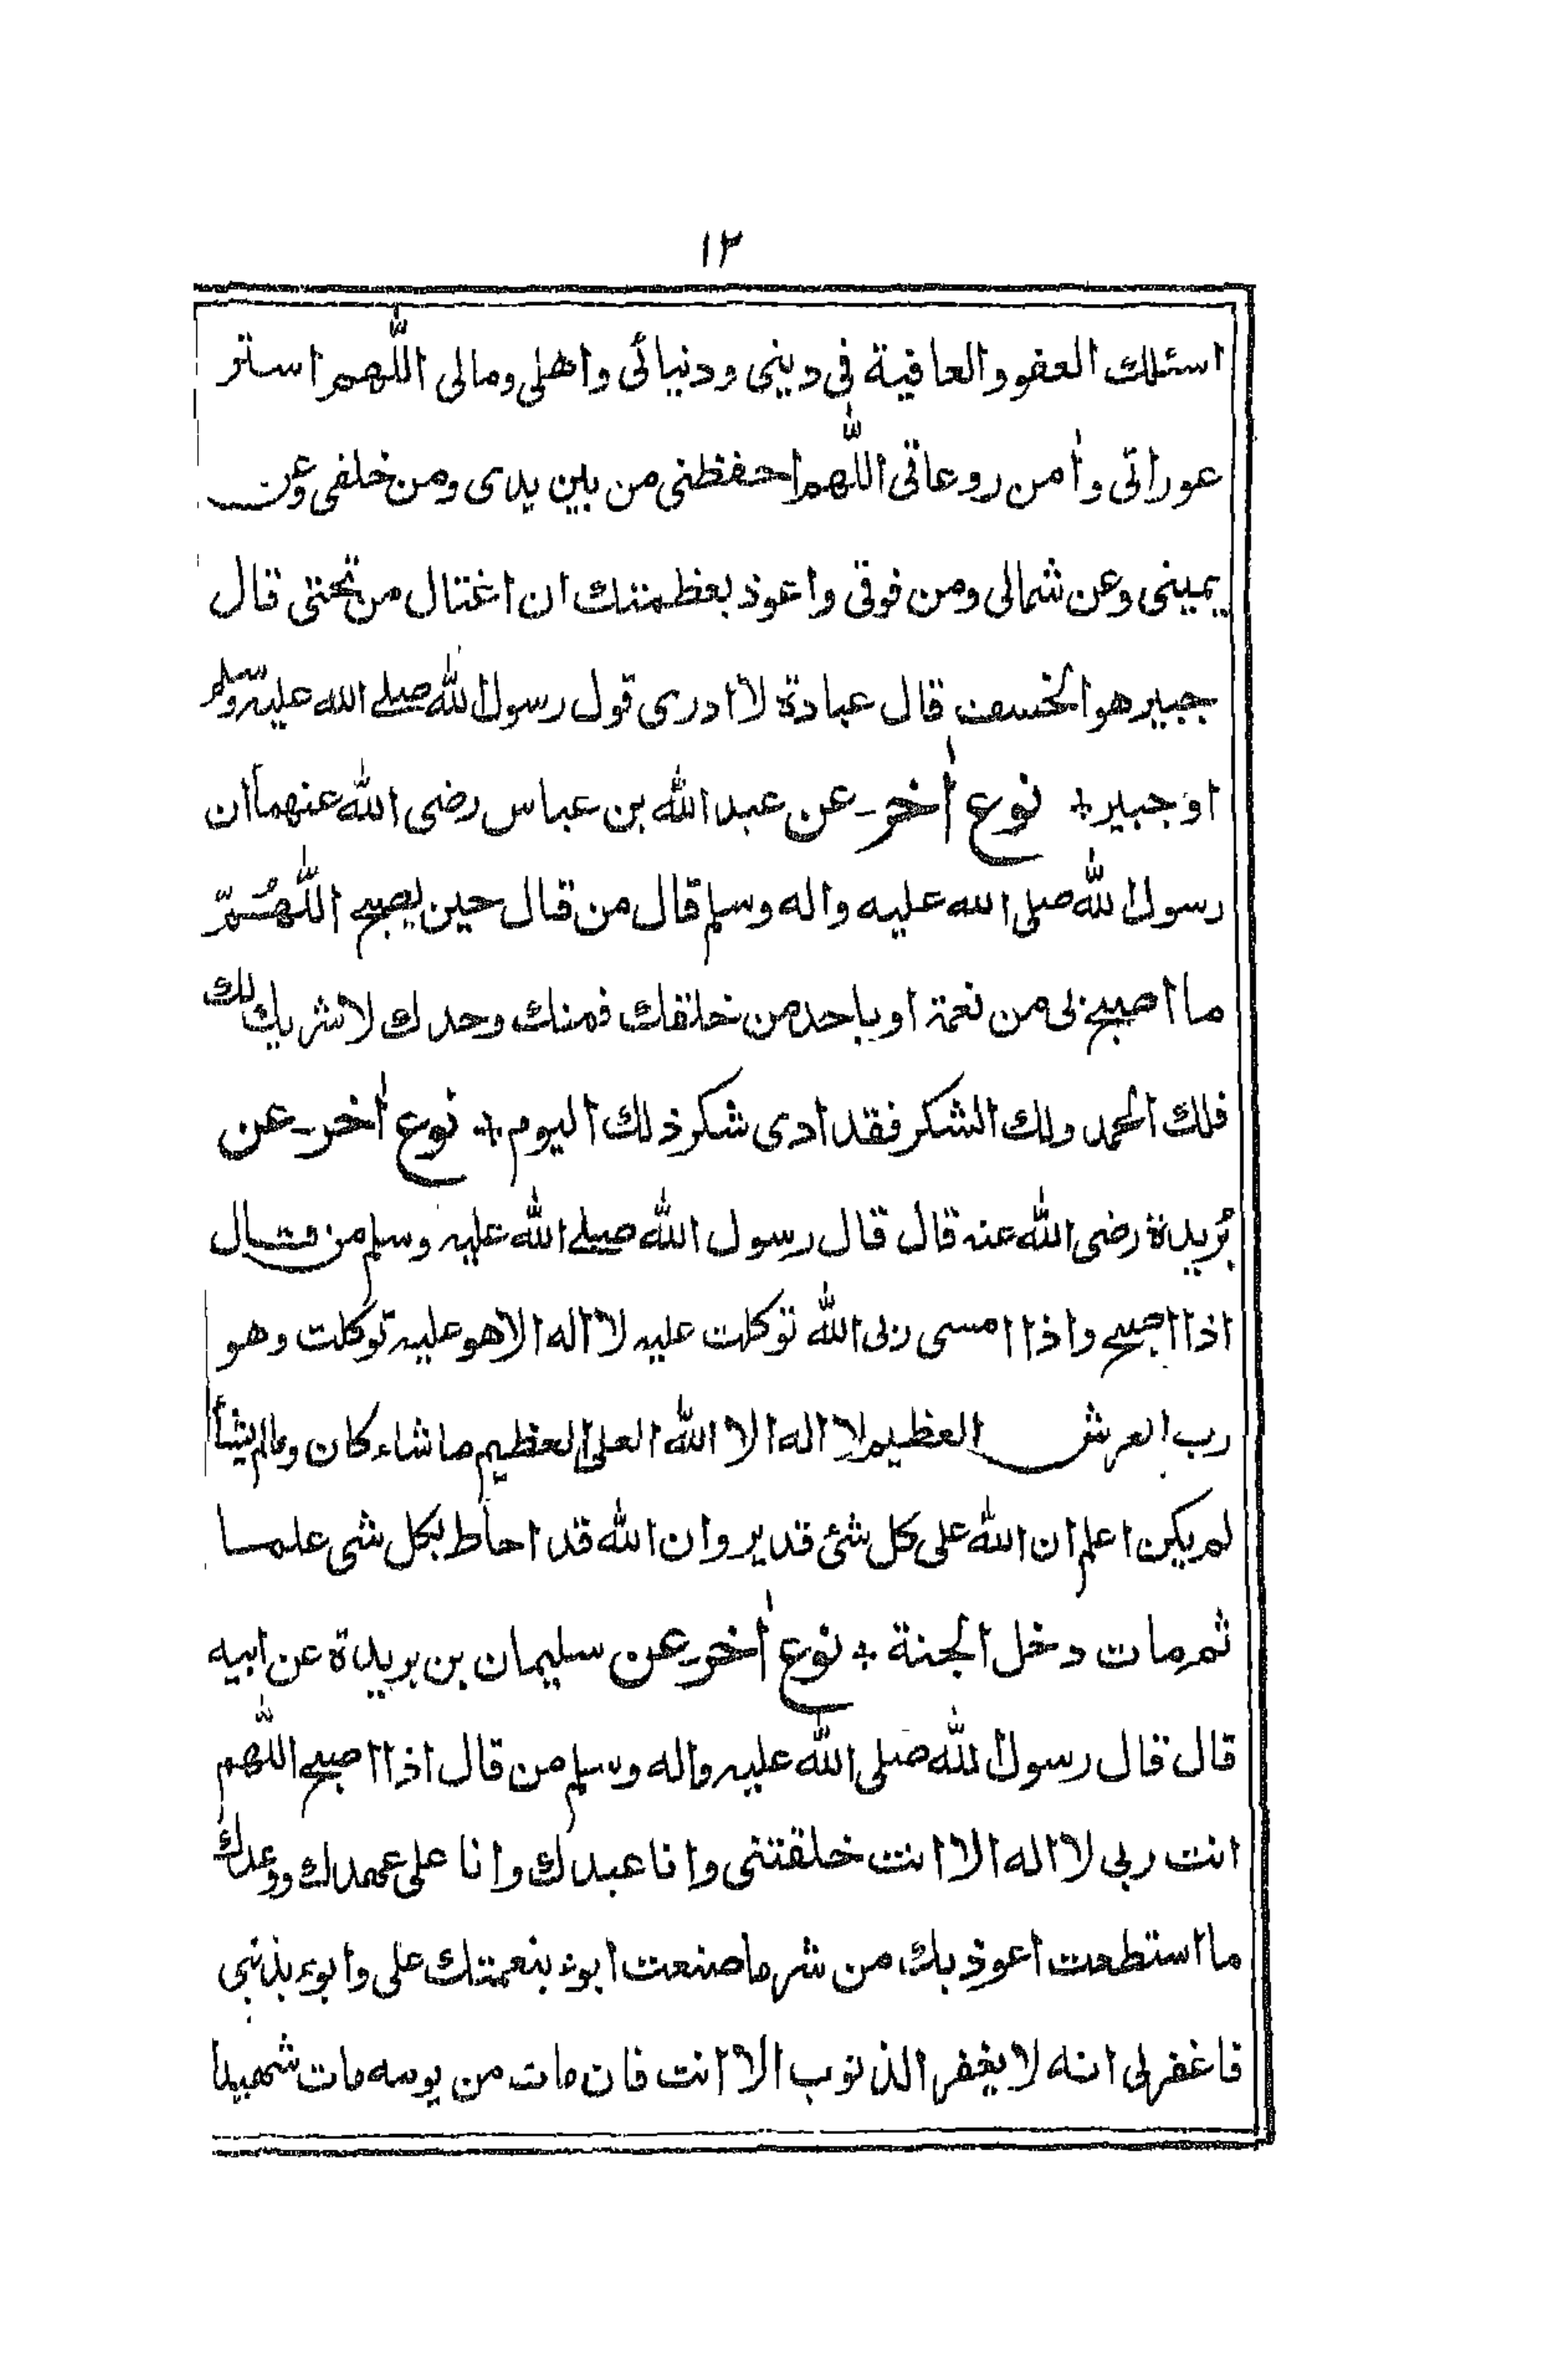 ١٢
اسئلك العفو والعافية فى دينى ودنيائى واهلى ومالى اللّهم استر
عوراتى وأمن روعاتى اللّهم احفظنى من بين يدى ومن خلفى وعن
يمينى وعن شمالى ومن فوقى واعوذ بعظمتك ان اغتال من تحتى قال
جبير هو الخسف قال عبادة لا ادرى قول رسول الله صلے الله عليه وسلم
او جبير + نوع أخر عن عبد الله بن عباس رضى الله عنهما ان
رسول الله صلى الله عليه واله وسلم قال من قال حين يصبح اللّهُمّ
ما اصبح بى من نعمة او باحد من خلقك فمنك وحدك لا شريك لك
فلك الحمد ولك الشكر فقد ادى شكر ذلك اليوم + نوع أخر عن
بُريدة رضى الله عنه قال قال رسول الله صلے الله عليه وسلم من قال
اذا اصبح واذا امسى ربى الله توكلت عليه لا اله الا هو عليه توكلت وهو
رب العرش العظيم لا اله الا الله العلى العظيم ما شاء كان ومالم يشأ
لم يكن اعلم ان الله على كل شئ قدير وان الله قد احاط بكل شى علما
ثم مات دخل الجنة + نوع أخر عن سليمان بن بريدة عن ابيه
قال قال رسول الله صلى الله عليه واله وسلم من قال اذا اصبح اللّهم
انت ربى لا اله الا انت خلقتنى وانا عبدك وانا على عهدك ووعدك
ما استطعت اعوذ بك من شر ما صنعت ابوء بنعمتك على وابوء بذنبى
فاغفر لى انه لا يغفر الذنوب الا انت فان مات من يومه مات شهيدا